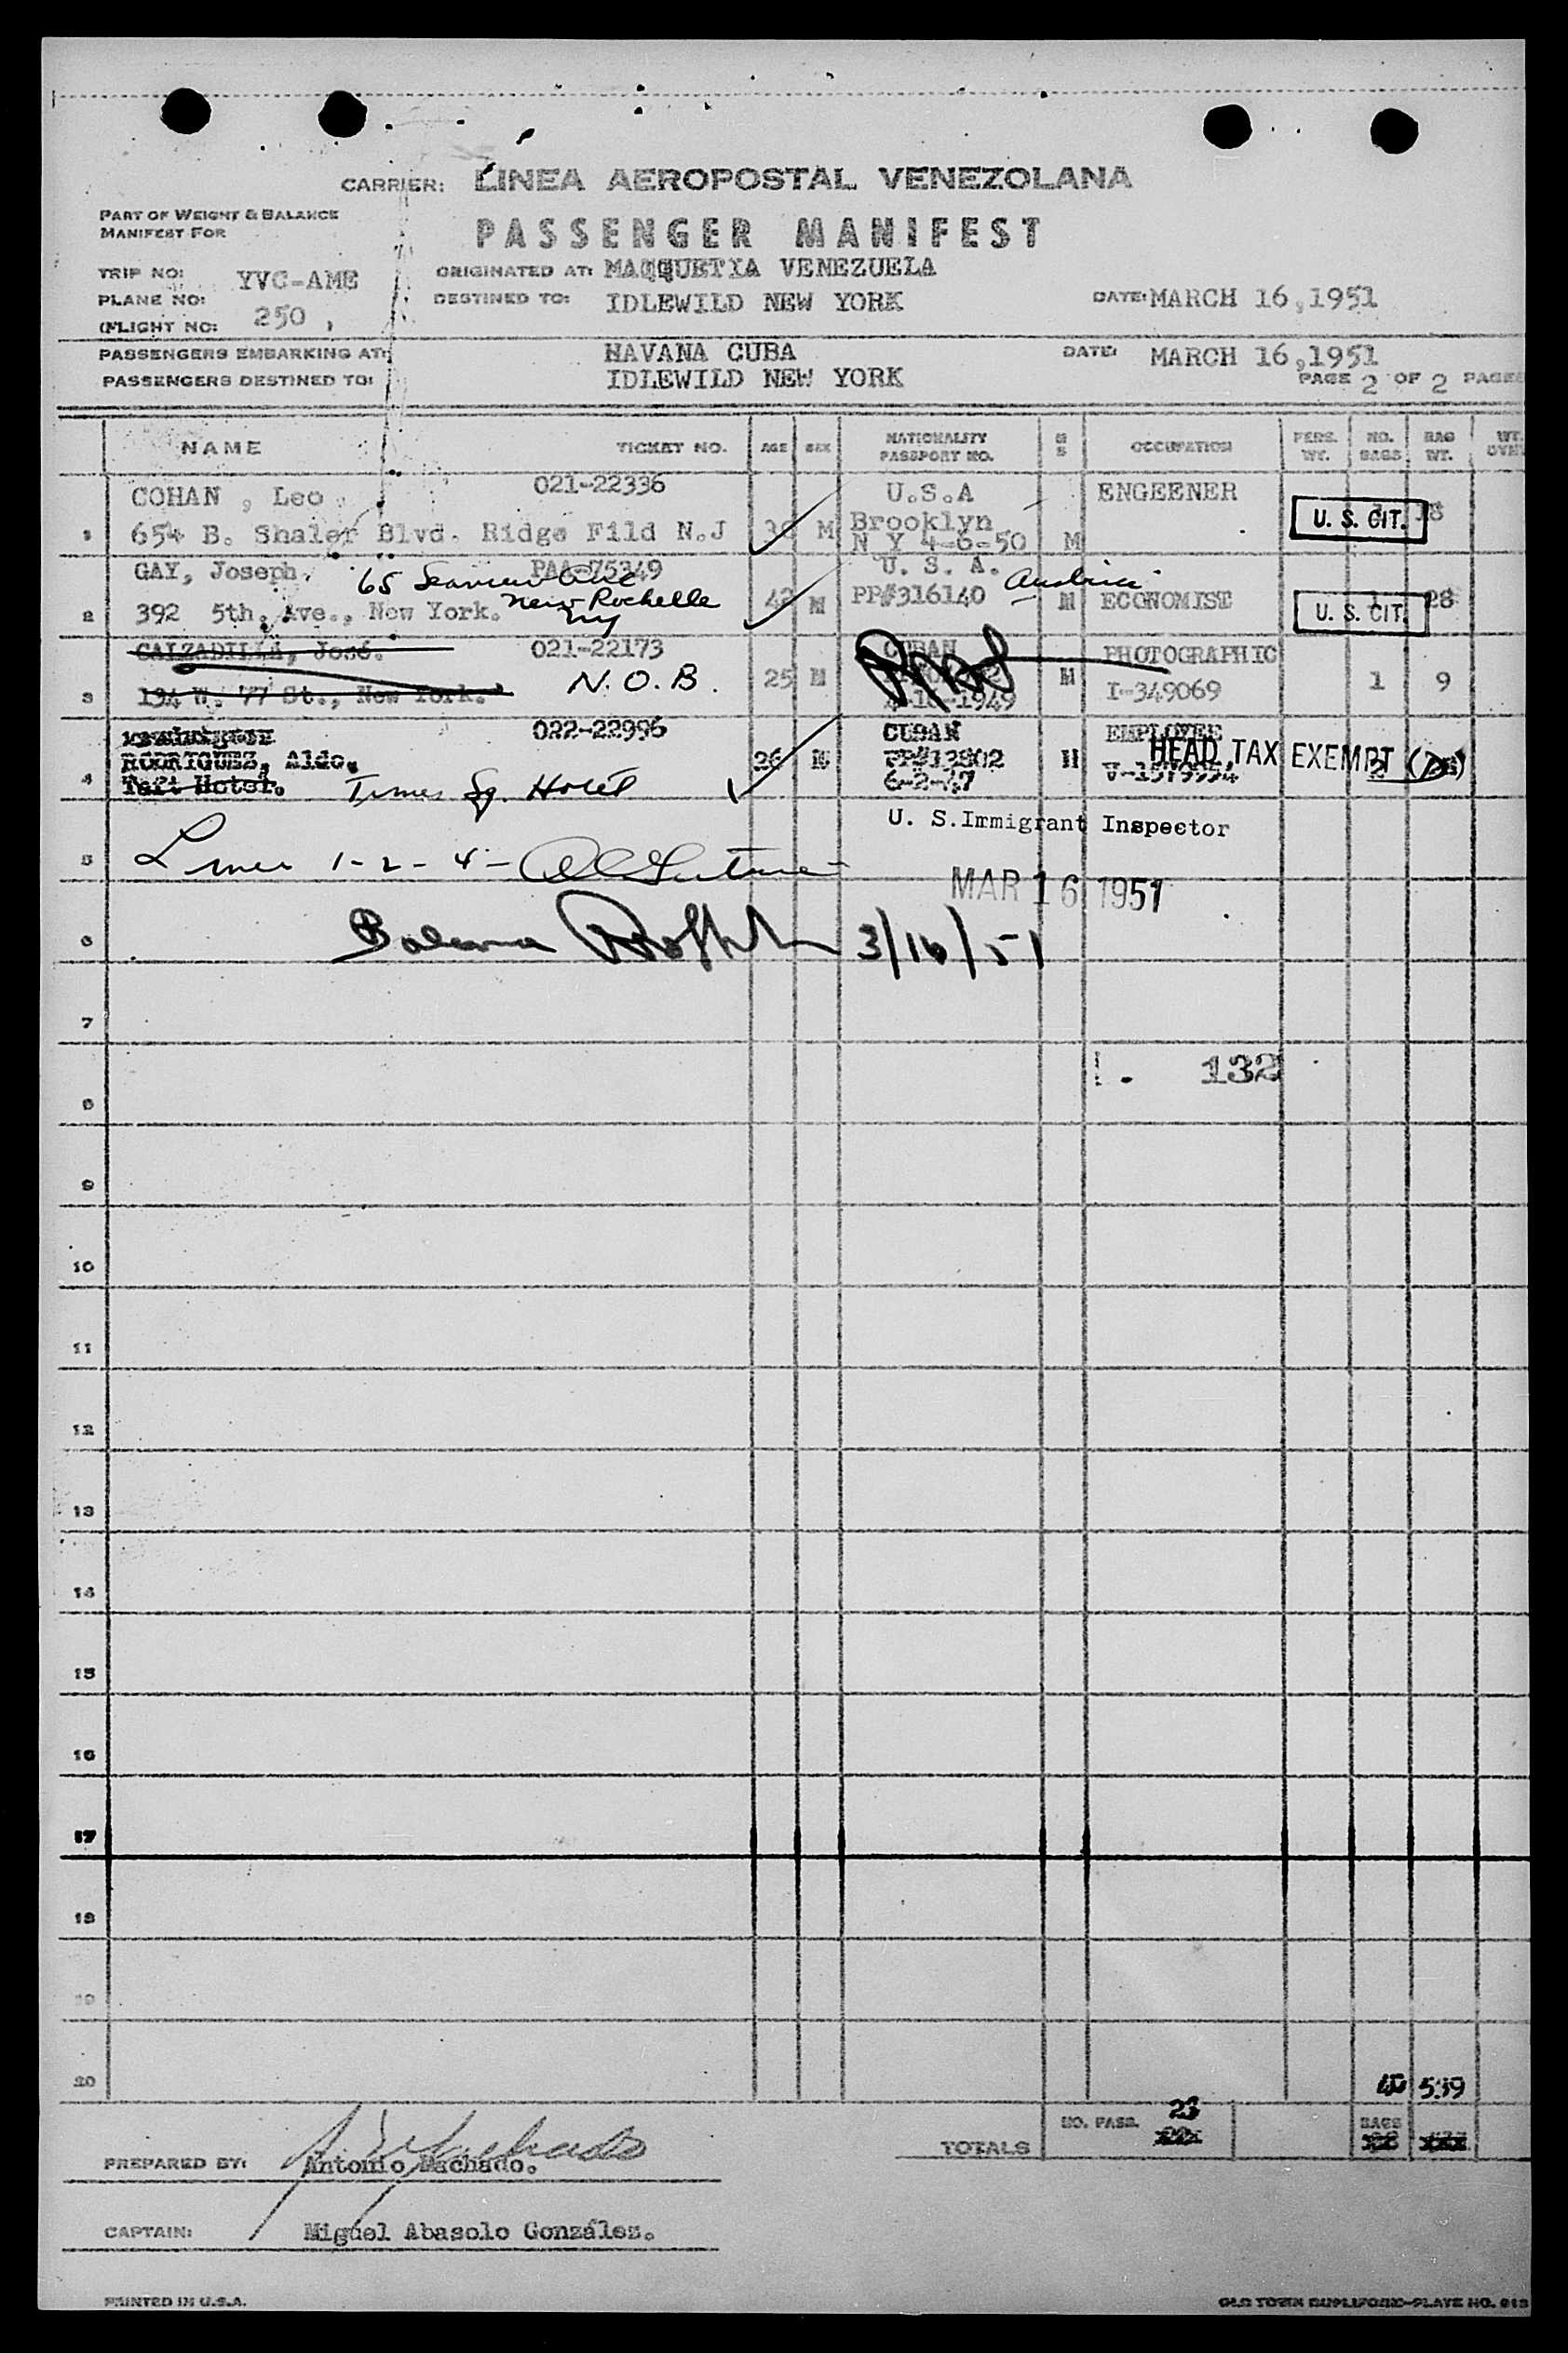 CARRIER: LINEA AEROPOSTAL VENEZOLANA
PART OF WEIGHT & BALANCE
MANIFEST FOR
PASSENGER MANIFEST
TRIP NO:
PLANE NO: YVC-AME
(FLIGHT NO: 250 ,
ORIGINATED AT: MAQQUETIA VENEZUELA
DESTINED TO: IDLEWILD NEW YORK
DATE: MARCH 16,1951
PASSENGERS EMBARKING AT: HAVANA CUBA
DATE: MARCH 16,1951
PASSENGERS DESTINED TO: IDLEWILD NEW YORK
PAGE 2 OF 2 PAGES
NAME TICKET NO. AGE SEX NATIONALITY PASSPORT NO. M S OCCUPATION PERS. WT. NO. BAGS BAG WT. WT.
COHAN , Leo 021-22336 U.S.A ENGEENER
1 654 B. Shaler Blvd. Ridge Fild N.J M Brooklyn M U. S. CIT.
N Y 4-6-50
GAY, Joseph. PAA-75349 U. S. A. Austria
65 Seaview Ave
New Rochelle
NY
2 392 5th. Ave., New York. 42 M PP#316140 M ECONOMIST U. S. CIT. 28
CALZADILLA, José. 021-22173 CUBAN PHOTOGRAPHIC
3 194 W. 77 St., New York. N.O.B. 25 M 1949 M I-349069 1 9
022-22996 CUBAN EMPLOYEE
RODRIGUEZ, Aldo. 36 M PP#13802 M HEAD TAX EXEMPT
4 Taft Hotel. Times Sq. Hotel 6-2-47 V-1579994 2
U. S. Immigrant Inspector
5 Lines 1-2-4-
MAR 16 1951
6 3/16/51
7
132
8
9
10
11
12
13
14
15
16
17
18
19
20
539
TOTALS NO. PASS. 23 BAGS
PREPARED BY: Antonio Machado.
CAPTAIN: Miguel Abasolo González.
PRINTED IN U.S.A.
OLD TOWN DUPLIFORM-PLATE NO. 913